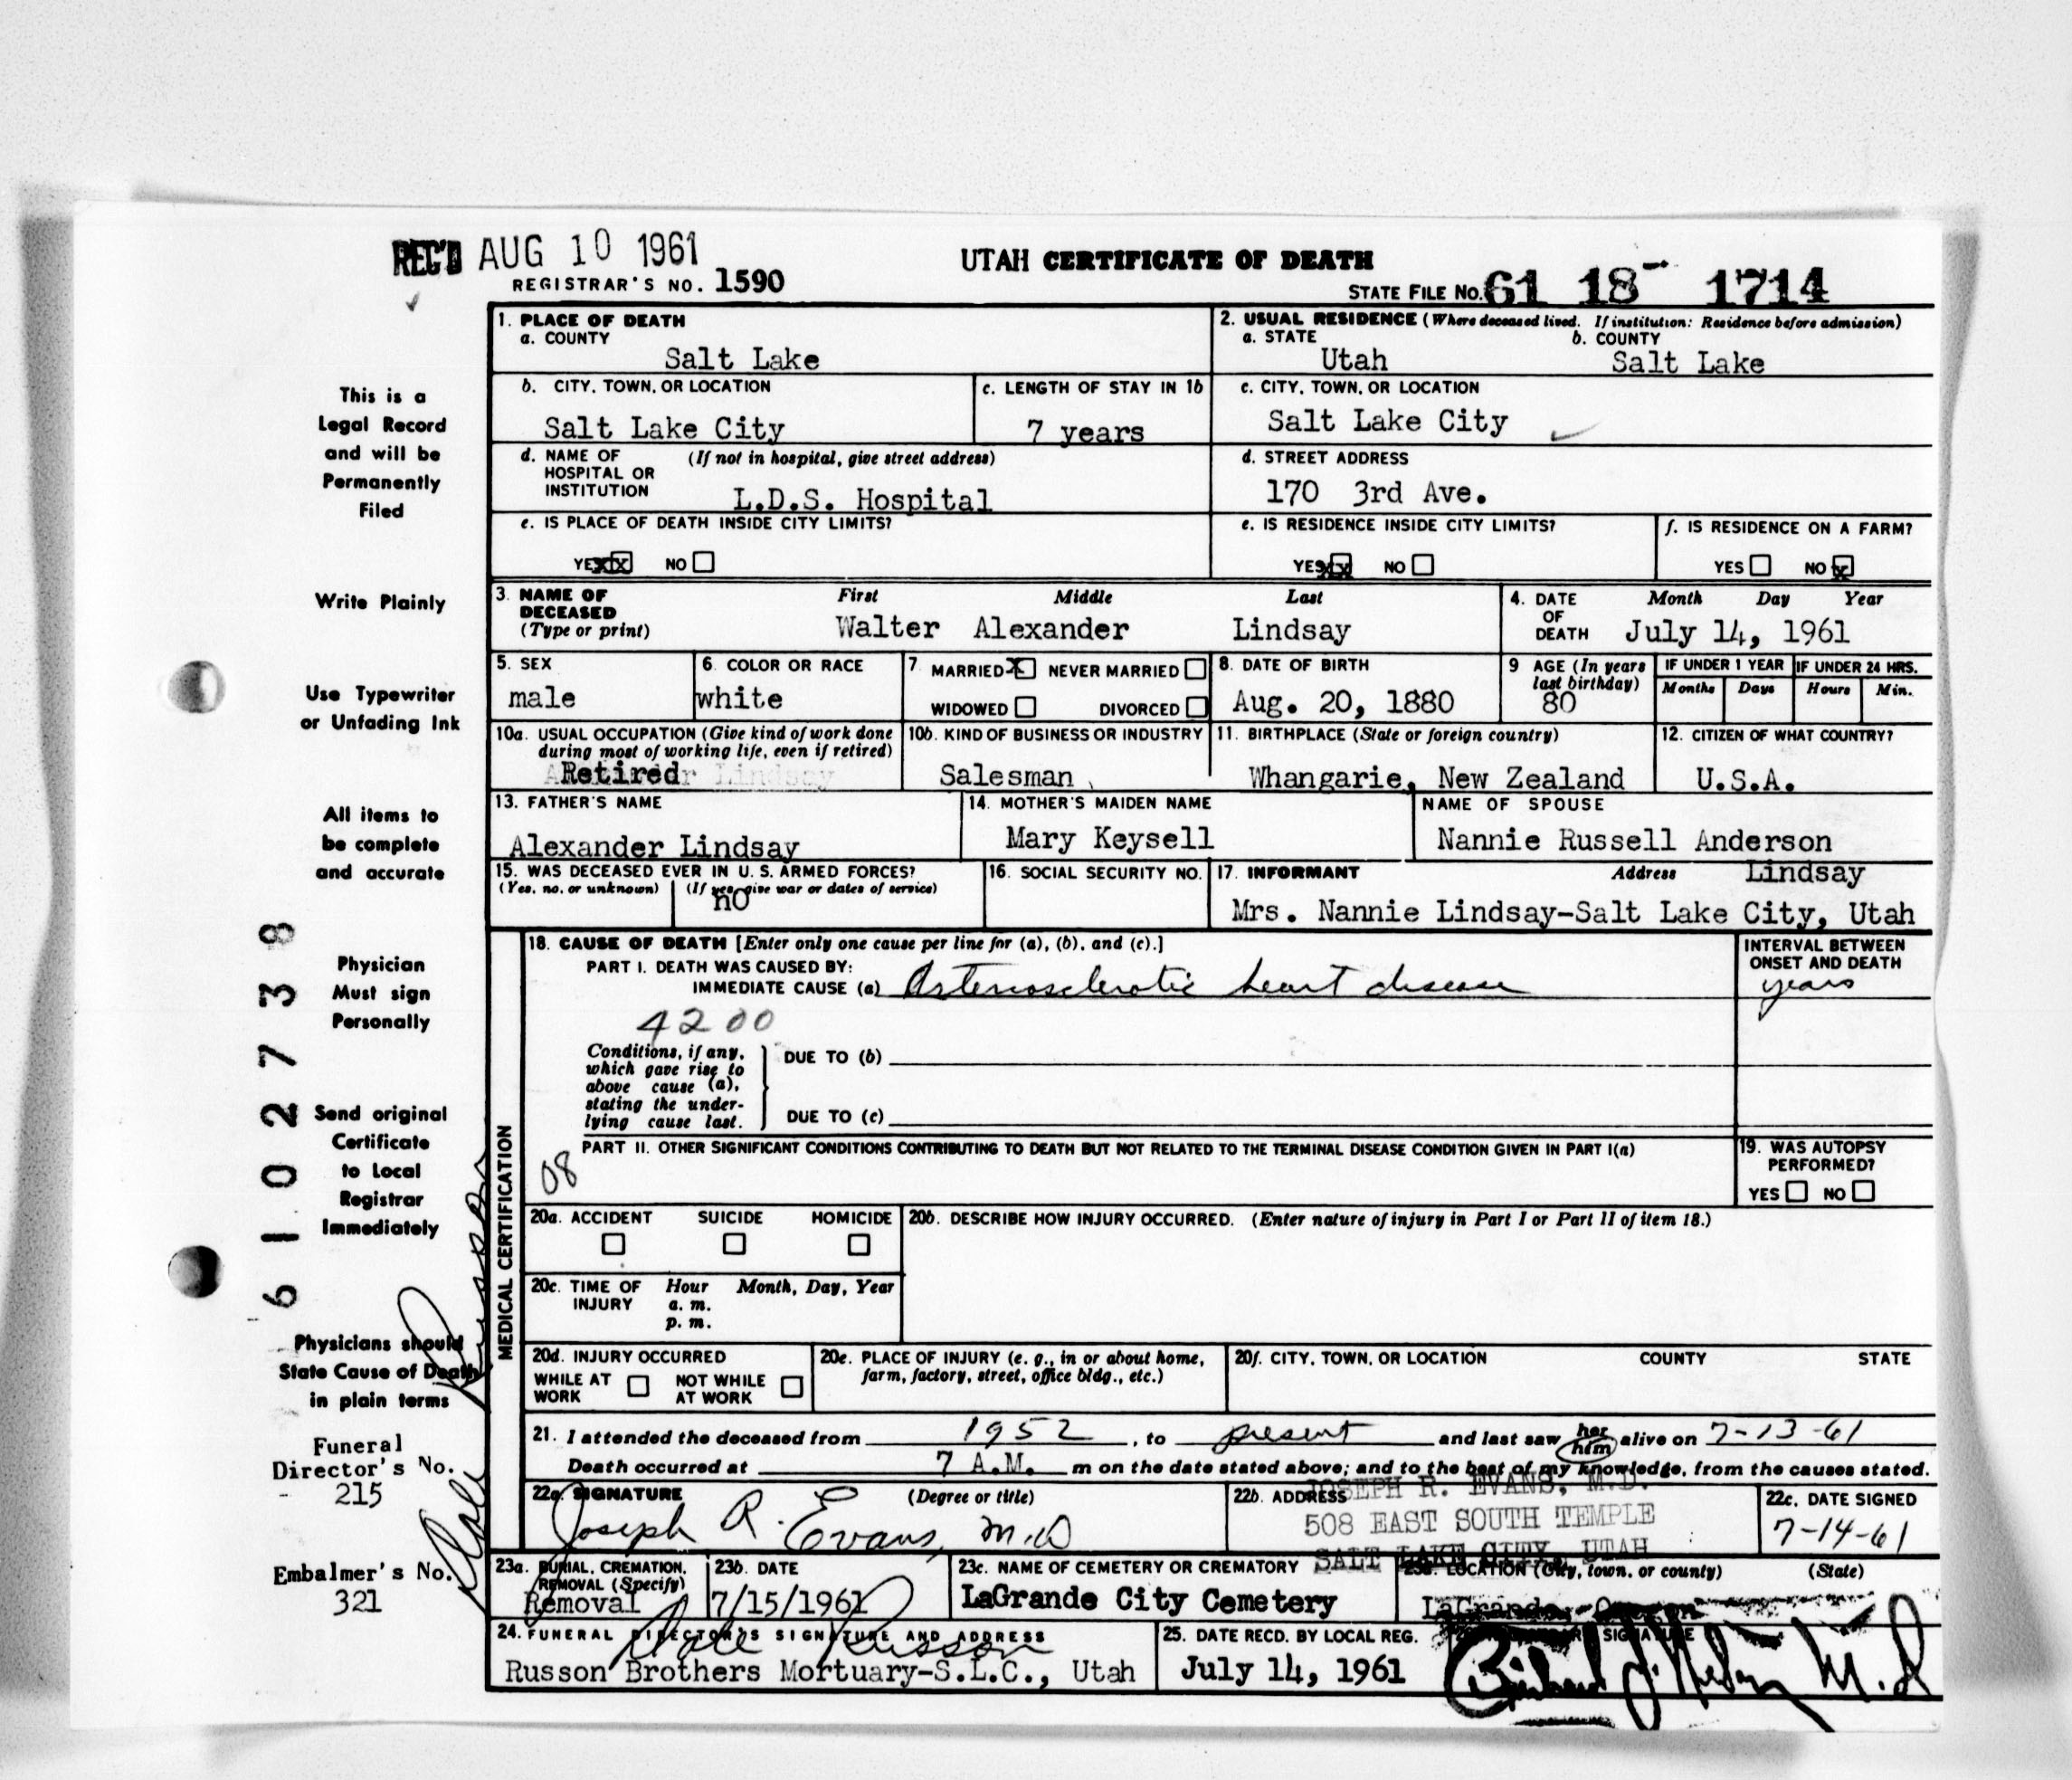 REC'D AUG 10 1961
REGISTRAR'S NO. 1590
UTAH CERTIFICATE OF DEATH
STATE FILE No. 61 18 1714
This is a
Legal Record
and will be
Permanently
Filed
Write Plainly
Use Typewriter
or Unfading Ink
All items to
be complete
and accurate
Physician
Must sign
Personally
Send original
Certificate
to Local
Registrar
Immediately
Physicians should
State Cause of Death
in plain terms
Funeral
Director's No.
215
Embalmer's No.
321
6 1 0 2 7 3 8
Dale Russon
1. PLACE OF DEATH
a. COUNTY
Salt Lake
2. USUAL RESIDENCE (Where deceased lived. If institution: Residence before admission)
a. STATE b. COUNTY
Utah Salt Lake
b. CITY, TOWN, OR LOCATION
Salt Lake City
c. LENGTH OF STAY IN 1b
7 years
c. CITY, TOWN, OR LOCATION
Salt Lake City
d. NAME OF (If not in hospital, give street address)
HOSPITAL OR
INSTITUTION L.D.S. Hospital
d. STREET ADDRESS
170 3rd Ave.
e. IS PLACE OF DEATH INSIDE CITY LIMITS?
YES XX NO
e. IS RESIDENCE INSIDE CITY LIMITS?
YES XX NO
f. IS RESIDENCE ON A FARM?
YES NO X
3. NAME OF First Middle Last
DECEASED
(Type or print) Walter Alexander Lindsay
4. DATE Month Day Year
OF
DEATH July 14, 1961
5. SEX
male
6. COLOR OR RACE
white
7. MARRIED X NEVER MARRIED
WIDOWED DIVORCED
8. DATE OF BIRTH
Aug. 20, 1880
9 AGE (In years
last birthday)
80
IF UNDER 1 YEAR IF UNDER 24 HRS.
Months Days Hours Min.
10a. USUAL OCCUPATION (Give kind of work done
during most of working life, even if retired)
Retired
10b. KIND OF BUSINESS OR INDUSTRY
Salesman
11. BIRTHPLACE (State or foreign country)
Whangarie, New Zealand
12. CITIZEN OF WHAT COUNTRY?
U.S.A.
13. FATHER'S NAME
Alexander Lindsay
14. MOTHER'S MAIDEN NAME
Mary Keysell
NAME OF SPOUSE
Nannie Russell Anderson
Lindsay
15. WAS DECEASED EVER IN U.S. ARMED FORCES?
(Yes, no, or unknown) (If yes, give war or dates of service)
no
16. SOCIAL SECURITY NO.
17. INFORMANT Address
Mrs. Nannie Lindsay-Salt Lake City, Utah
MEDICAL CERTIFICATION
18. CAUSE OF DEATH [Enter only one cause per line for (a), (b), and (c).]
PART I. DEATH WAS CAUSED BY:
IMMEDIATE CAUSE (a) Arteriosclerotic heart disease
INTERVAL BETWEEN
ONSET AND DEATH
years
4200
Conditions, if any,
which gave rise to
above cause (a),
stating the under-
lying cause last.
DUE TO (b)
DUE TO (c)
PART II. OTHER SIGNIFICANT CONDITIONS CONTRIBUTING TO DEATH BUT NOT RELATED TO THE TERMINAL DISEASE CONDITION GIVEN IN PART I(a)
08
19. WAS AUTOPSY
PERFORMED?
YES NO
20a. ACCIDENT SUICIDE HOMICIDE
20b. DESCRIBE HOW INJURY OCCURRED. (Enter nature of injury in Part I or Part II of item 18.)
20c. TIME OF Hour Month, Day, Year
INJURY a. m.
p. m.
20d. INJURY OCCURRED
WHILE AT NOT WHILE
WORK AT WORK
20e. PLACE OF INJURY (e. g., in or about home,
farm, factory, street, office bldg., etc.)
20f. CITY, TOWN, OR LOCATION COUNTY STATE
21. I attended the deceased from 1952, to present and last saw her him alive on 7-13-61
Death occurred at 7 A.M. m on the date stated above; and to the best of my knowledge, from the causes stated.
22a. SIGNATURE (Degree or title)
Joseph R. Evans, M.D
22b. ADDRESS
JOSEPH R. EVANS, M.D.
508 EAST SOUTH TEMPLE
SALT LAKE CITY, UTAH
22c. DATE SIGNED
7-14-61
23a. BURIAL, CREMATION,
REMOVAL (Specify)
Removal
23b. DATE
7/15/1961
23c. NAME OF CEMETERY OR CREMATORY
LaGrande City Cemetery
23d. LOCATION (City, town, or county) (State)
LaGrande, Oregon
24. FUNERAL DIRECTOR'S SIGNATURE AND ADDRESS
Dale Russon
Russon Brothers Mortuary-S.L.C., Utah
25. DATE RECD. BY LOCAL REG.
July 14, 1961
SIGNATURE
M.D